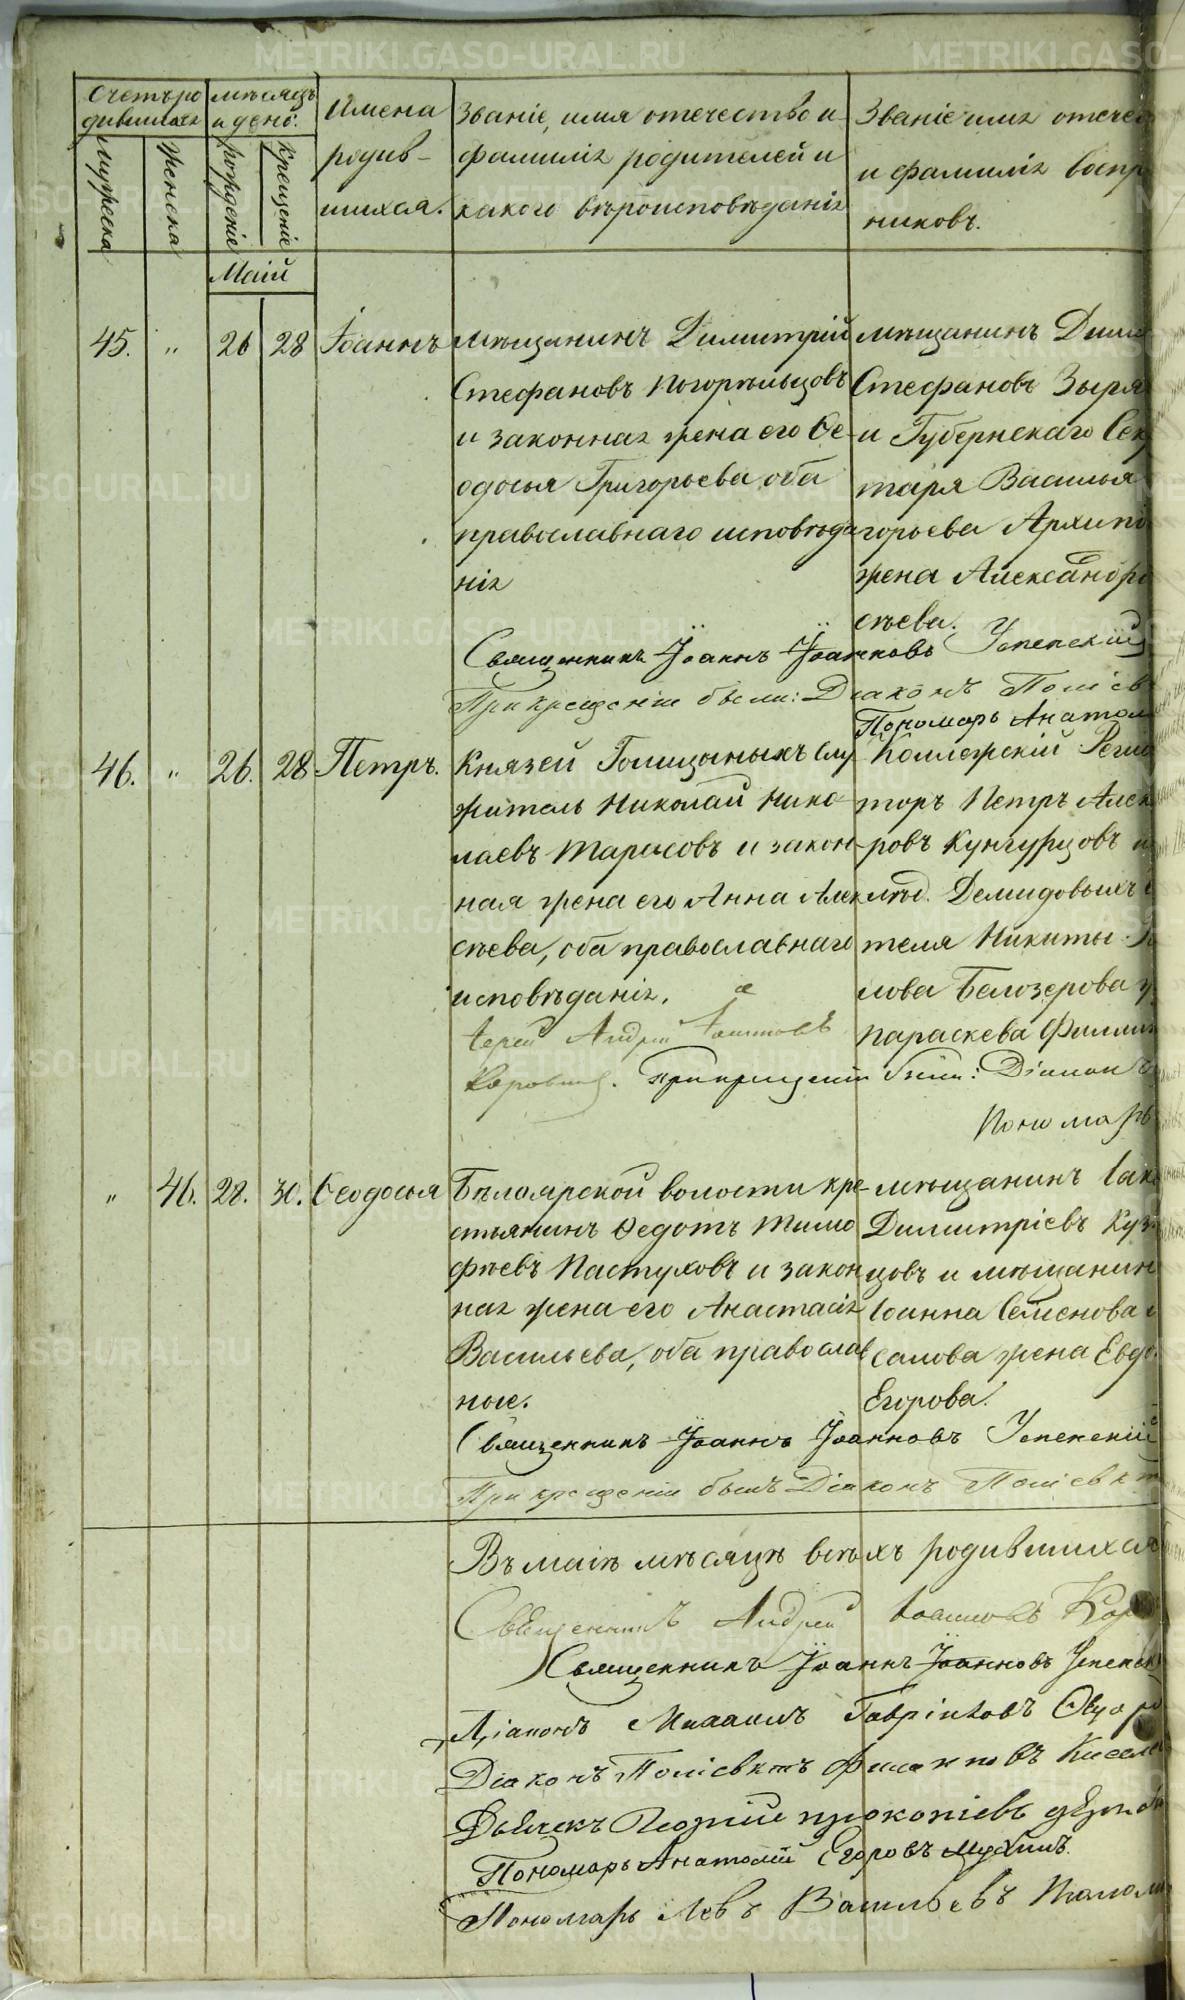 Счетъ ро
дившихся
мѣсяцъ
и день.
Имена
родив-
шихся.
Званіе, имя отечество и
фамилія родителей и
какого вѣроисповѣданія
Званіе имя отечес
и фамилія воспр
никовъ.
Мужеска
Женска
рожденіе
крещеніе
Маій
45. " 26 28 Іоаннъ
Мѣщанинъ Димитрій
Стефановъ Погорѣльцовъ
и законная жена его Ѳе-
одосья Григорьева оба
православнаго исповѣда
нія
мѣщанинъ Дими
Стефановъ Зыря
и Губернскаго Сек
таря Василья
горьева Архипо
жена Александра
сѣева.
Священникъ Іоаннъ Іоанновъ Успенскій
При крещеніи были: Діаконъ Поліев
Пономарь Анатол
46. " 26. 28 Петръ.
Князей Голицыныхъ слу
житель Николай Нико
лаевъ Тарасовъ и закон-
ная жена его Анна Алек
сѣева, оба православнаго
исповѣданія.
Коллежскій Регис
торъ Петръ Алек
ровъ Кунгурцовъ и
Демидовыхъ
теля Никиты
лова Белозерова
Параскева Филип
Іерей Андрей Іоанновъ
При крещеніи были: Діаконъ
Пономарь
" 46. 28. 30. Ѳеодосья
Бѣлоярской волости кре-
стьянинъ Ѳедотъ Тимо
фѣевъ Пастуховъ и закон
ная жена его Анастасія
Васильева, оба православ
ные.
мѣщанинъ Іак
Димитріевъ Куз
цовъ и мѣщанин
Іоанна Семенова
салова жена Евдо
Егорова.
Священникъ Іоаннъ Іоанновъ Успенскій
При крещеніи былъ Діаконъ Поліевкт
Въ маіѣ мѣсяцѣ всѣхъ родившихся
Священникъ Андрей Іоанновъ Кор
Священникъ Іоаннъ Іоанновъ Успенск
Діаконъ Михаилъ Гавріиловъ
Діаконъ Поліевктъ Филипповъ Кисел
Дьячекъ Георгій Прокопіевъ
Пономарь Анатолій Егоровъ
Пономарь Левъ Васильевъ
METRIKI.GASO-URAL.RU